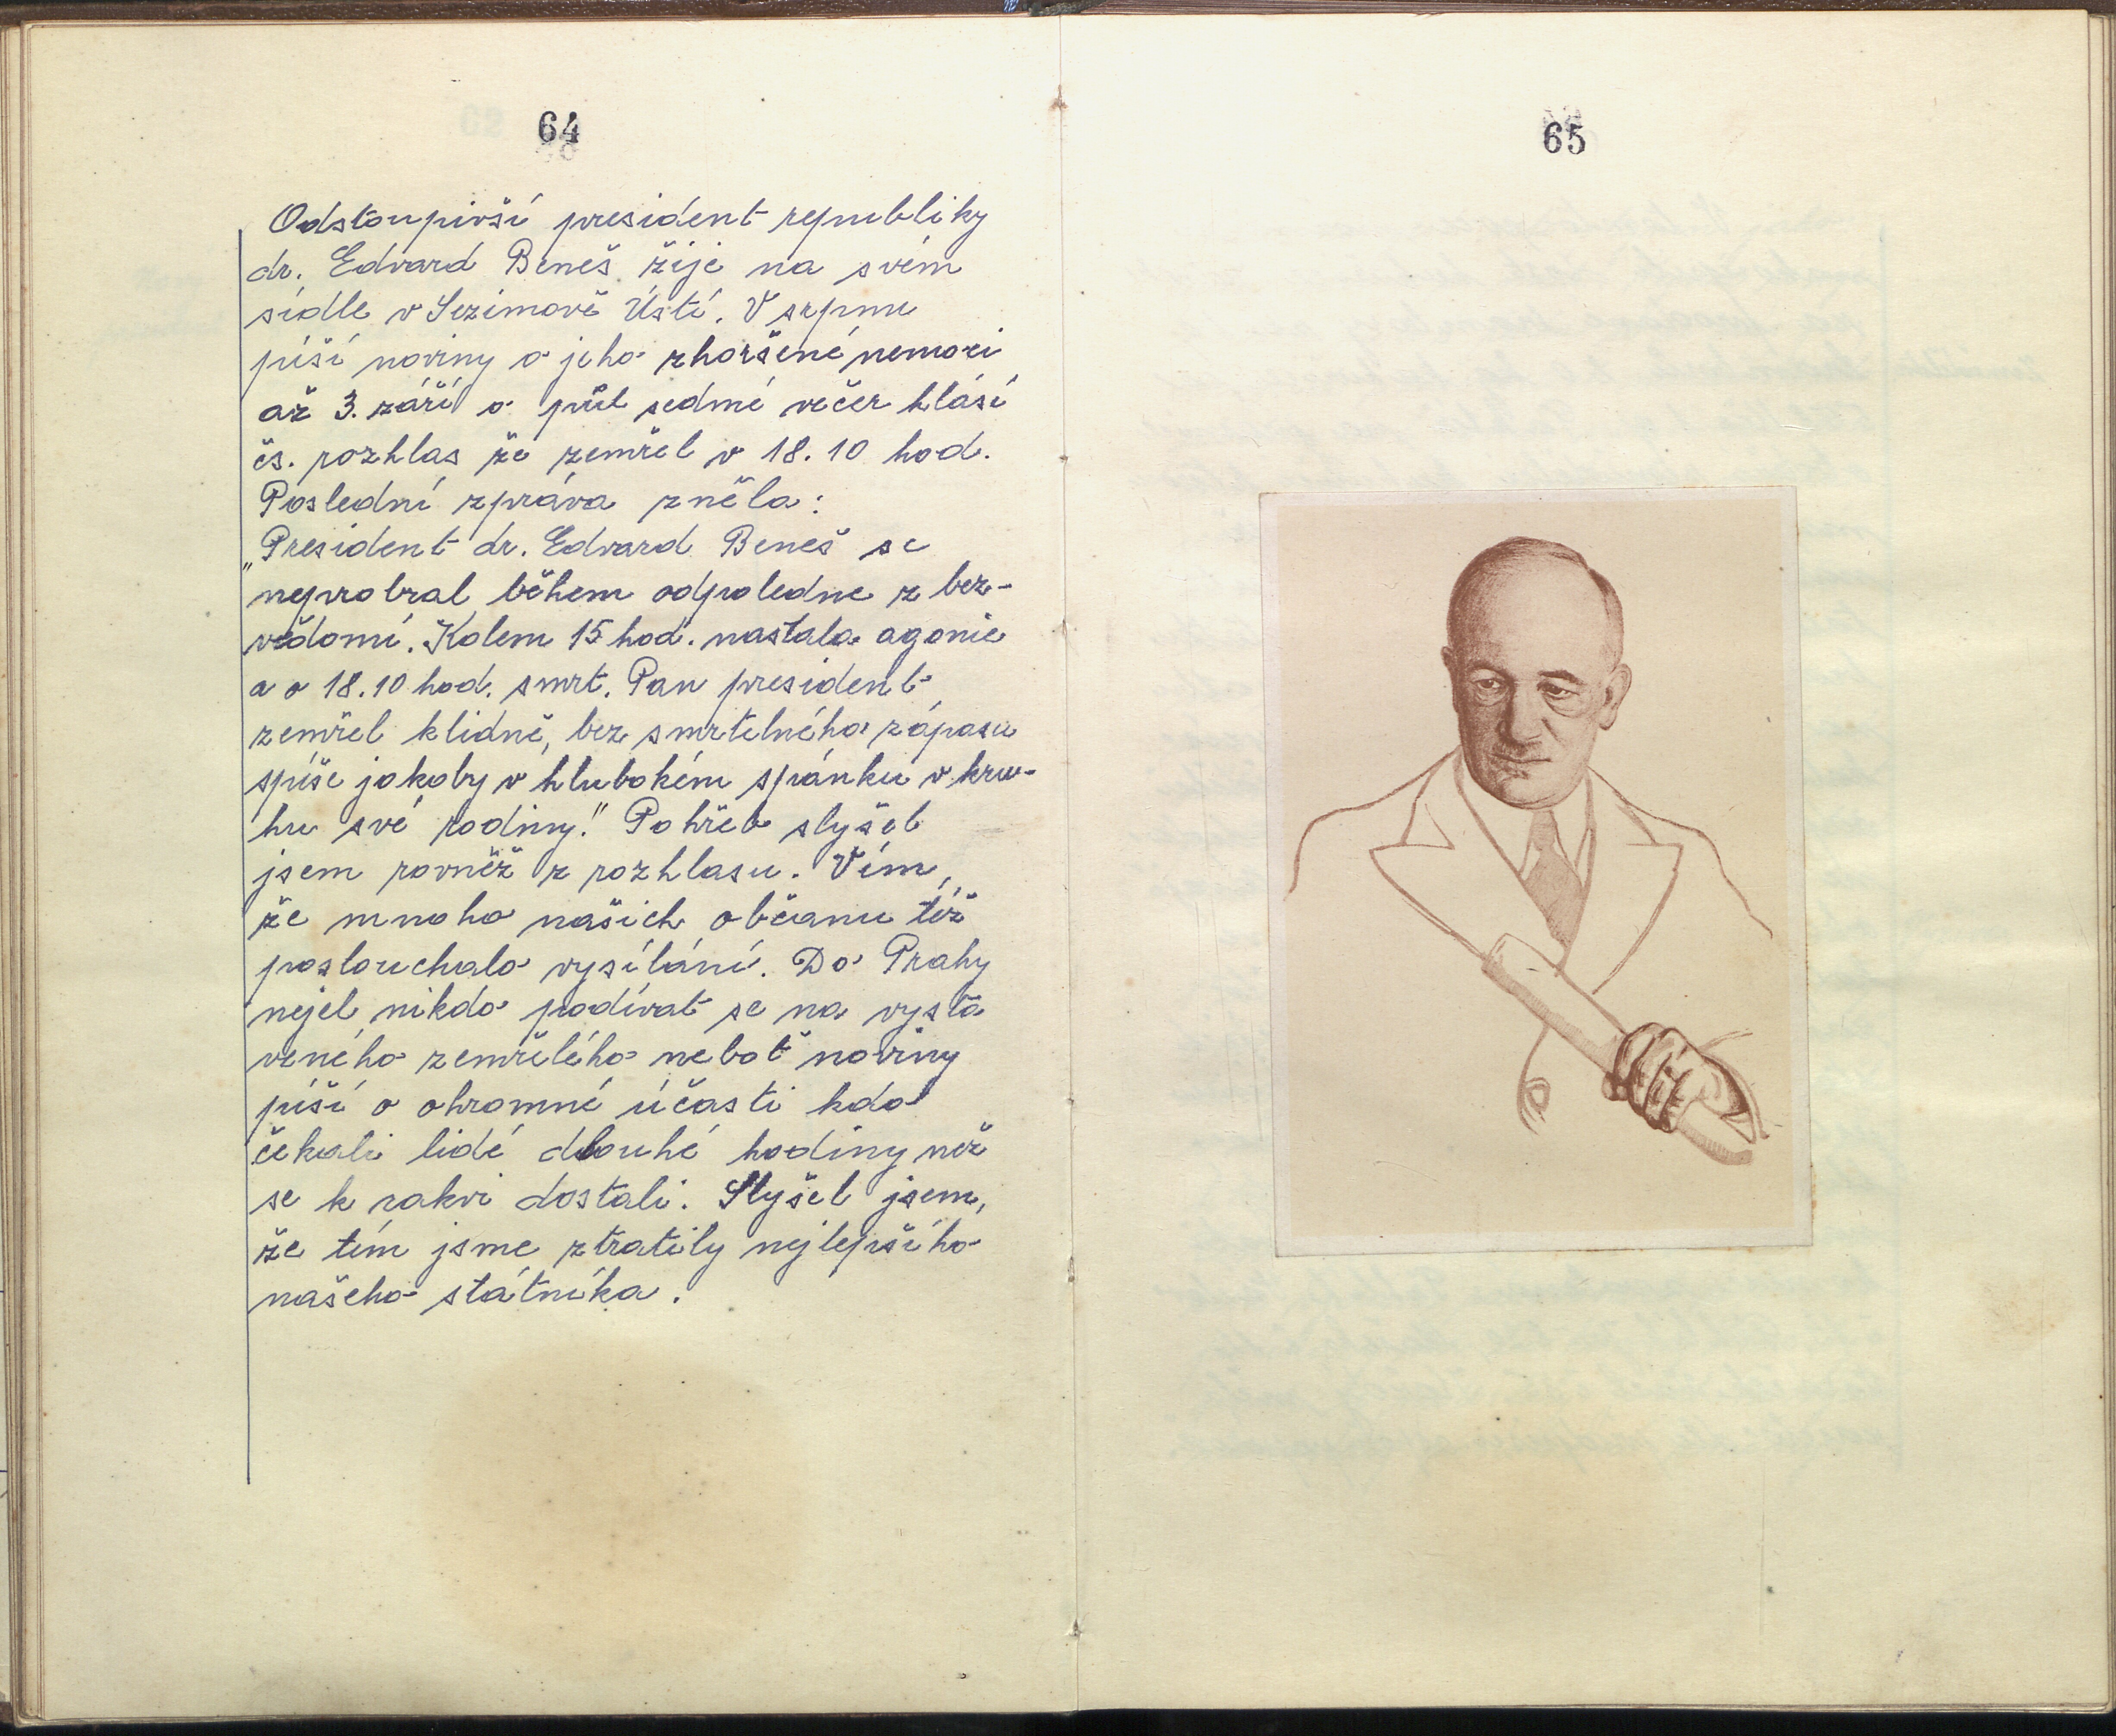 64
Odstoupivší president republiky
dr. Edvard Beneš žije na svém
sídle v Sezimově Ústí. V srpnu
píší noviny o jeho zhoršené nemoci
až 3. září o půl sedmé večer hlásí
čs. rozhlas že zemřel v 18.10 hod.
Poslední zpráva zněla:
„President dr. Edvard Beneš se
neprobral během odpoledne z bez-
vědomí. Kolem 15 hod. nastala agonie
a v 18.10 hod. smrt. Pan president
zemřel klidně, bez smrtelného zápasu
spíše jakoby v hlubokém spánku v kru-
hu své rodiny!" Pohřeb slyšel
jsem rovněž z rozhlasu. Vím,
že mnoho našich občanu též
poslouchalo vysílání. Do Prahy
nejel nikdo podívat se na vysta
veného zemřelého neboť noviny
píší o ohromné účasti kdo
čekali lidé dlouhé hodiny než
se k rakvi dostali. Slyšel jsem,
že tím jsme ztratily nejlepšího
našeho státníka.
65